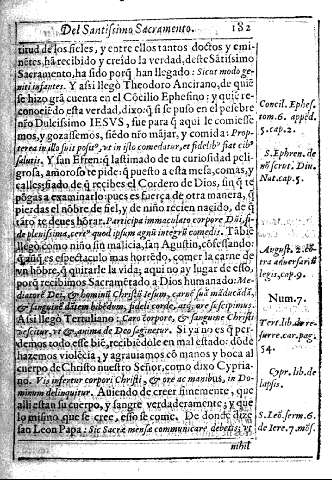 Del Santissimo Sacramento. 182
titud de los fieles, y entre ellos tantos doctos y emi-
nẽtes, ha recibido y creído la verdad, deste Sãtissimo
Sacramento, ha sido porq̃ han llegado: Sicut modo ge-
niti infantes. Y assi llegò Theodoro Ancirano, de quiẽ
se hizo grã cuenta en el Cõcilio Ephesino: y quiẽ re-
conociẽdo esta verdad, dixo: q̃ si se puso en el pesebre
nr̃o Dulcissimo IESVS, fue para q̃ aqui le comiesse-
mos, y gozassemos, siẽdo nr̃o májar, y comida: Prop-
terea in illo fuit posit⁹, vt in isto comedatur, et fidelib⁹ fiat cib⁹
salutis. Y san Efren: q̃ lastimado de tu curiosidad peli-
grosa, amoroso te pide: q̃ puesto a esta mesa, comas, y
calles, fiado de q̃ recibes el Cordero de Dios, sin q̃ te
põgas a examinarlo: pues es fuerça de otra manera, q̃
pierdas el nõbre de fiel, y de niño rezien nacido, de q̃
tãto te deues hõrar. Participa immaculato corpore Dñi, fi-
de plenissima, cert⁹ quod ipsum agnũ integrũ comedis. Tãbiẽ
llegò como niño sin malicia, san Agustin, cõfessando:
q̃ aunq̃ es espectaculo mas horrẽdo, comer la carne de
vn hõbre, q̃ quitarle la vida; aqui no ay lugar de esso,
porq̃ recibimos Sacramẽtado a Dios humanado: Me-
diatorẽ Dei, & hominũ Christũ Iesum, carnẽ suã mãducãdã,
& sanguinẽ bibendũ dantem, fideli corde, atq; ore suscipimus.
Assi llegò Tertuliano: Caro corpore, & sanguine Christi
vescitur, vt & anima de Deo saginetur. Si ya no es q̃ per-
demos todo esse biẽ, recibiẽdole en mal estado: dõde
hazemos violẽcia, y agrauiamos cõ manos y boca al
cuerpo de Christo nuestro Señor, como dixo Cypria-
no. Vis infertur corpori Christi, & ore ac manibus, in Do-
minum delinquitur. Auiendo de creer finemente, que
alli estan su cuerpo, y sangre verdaderamente; y que
lo mismo que se cree, esso se come. De donde dize
san Leon Papa: Sic Sacræ mensæ communicare debetis, vt
nihil
Concil. Ephes.
tom. 6. apped.
5. cap. 2.
S. Ephren. de
nõ scrot. Diu.
Nat. cap. 5.
August. 2. cõ
tra aduersariũ
legis, cap. 9.
Num. 7.
Tert. lib. de re-
surre. car. pag.
54.
Cypr. lib. de
lapsis.
S. Leõ. serm. 6.
de Iere. 7. mẽs.